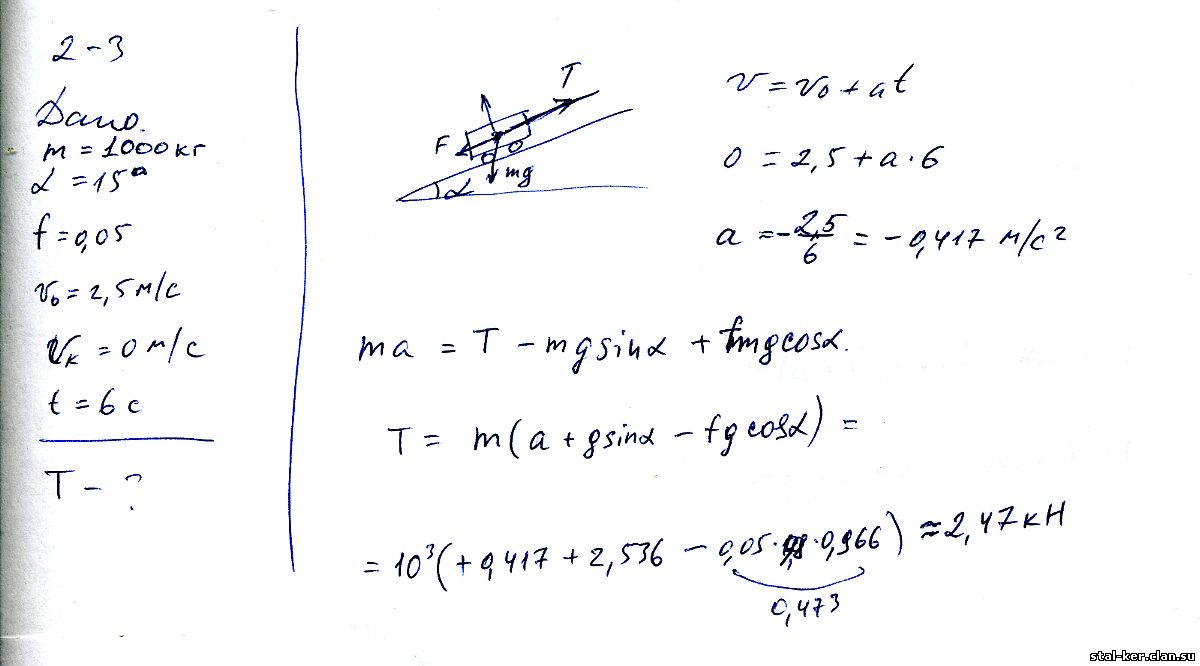 2-3
Дано.
m = 1000 кг
α = 15°
f = 0,05
v₀ = 2,5 м/с
vₖ = 0 м/с
t = 6 с
T - ?
T
F
mg
α
v = v₀ + at
0 = 2,5 + a·6
a = -2,5/6 = -0,417 м/с²
ma = T - mg sinα + fmg cosα.
T = m(a + g sinα - fg cosα) =
= 10³(+0,417 + 2,536 - 0,05· ·0,966) ≈ 2,47 кН
0,473
stal-ker.clan.su